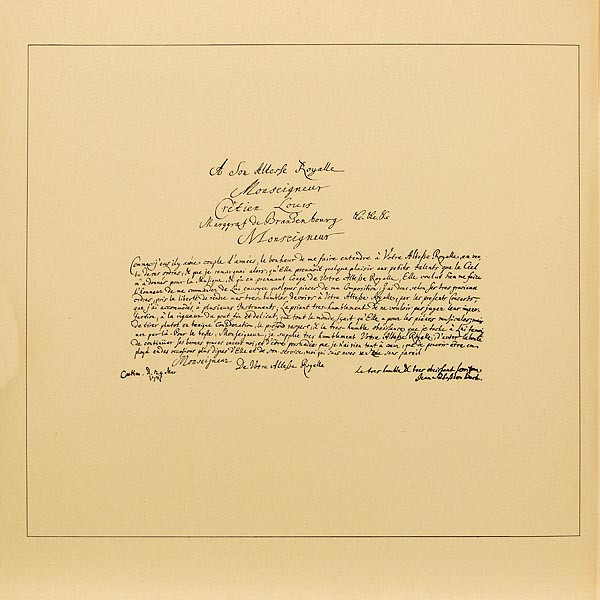 A Son Altesse Royalle
Monseigneur
Crêtien Louis
Marggraf de Brandenbourg &c. &c. &c
Monseigneur
Comme j'eus il y a une couple d'années, le bonheur de me faire entendre à Votre Altesse Royalle, en ver-
tu de ses ordres, & que je remarquai alors, qu'Elle prennoit quelque plaisir aux petits talents que le Ciel
m'a donnés pour la Musique, & qu'en prennant Congé de Votre Altesse Royalle, Elle voulut bien me faire
l'honneur de me commander de Lui envoyer quelques pieces de ma Composition: j'ai donc, selon ses tres gracieux
ordres, pris la liberté de rendre mes tres-humbles devoirs à Votre Altesse Royalle, par les presents Concerts,
que j'ai accommodés à plusieurs Instruments; La priant tres-humblement de ne vouloir pas juger leur imper-
fection, à la rigueur du gout fin et delicat, que tout le monde sçait qu'Elle a pour les piéces musicales; mais
de tirer plutot en benigne Consideration, le profond respect, & la tres-humble obeissance que je tache à Lui temoi-
gner par là. Pour le reste, Monseigneur, je supplie tres humblement Votre Altesse Royalle, d'avoir la bonté
de continuer ses bonnes graces envers moi, et d'être persuadée que je n'ai rien tant à coeur, que de pouvoir être em-
ployé en des occasions plus dignes d'Elle et de son service, moi qui suis avec un zele sans pareil
Monseigneur
De Votre Altesse Royalle
Coethen. d. 24 Mar
1721
Le tres humble & tres obeissant serviteur
Jean Sebastien Bach.